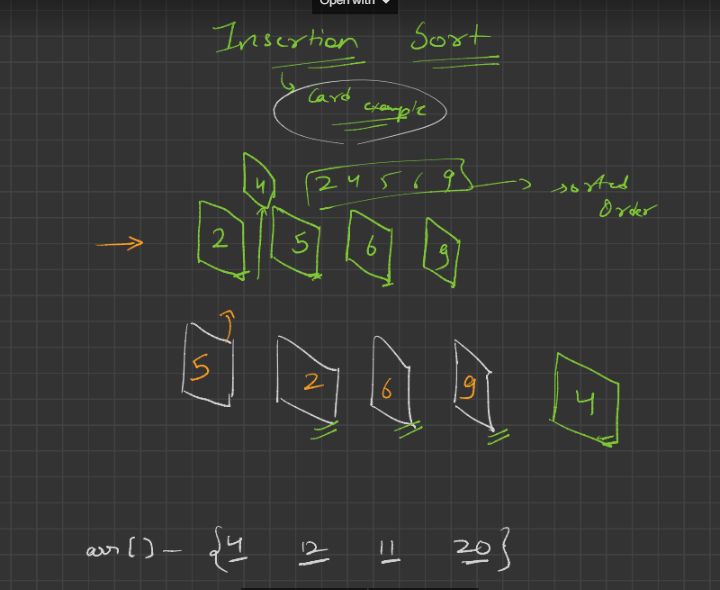 Open with
Insertion Sort
Card example
4
2 4 5 6 9 sorted
Order
2 5 6 9
5 2 6 9 4
arr[] - {4 12 11 20}